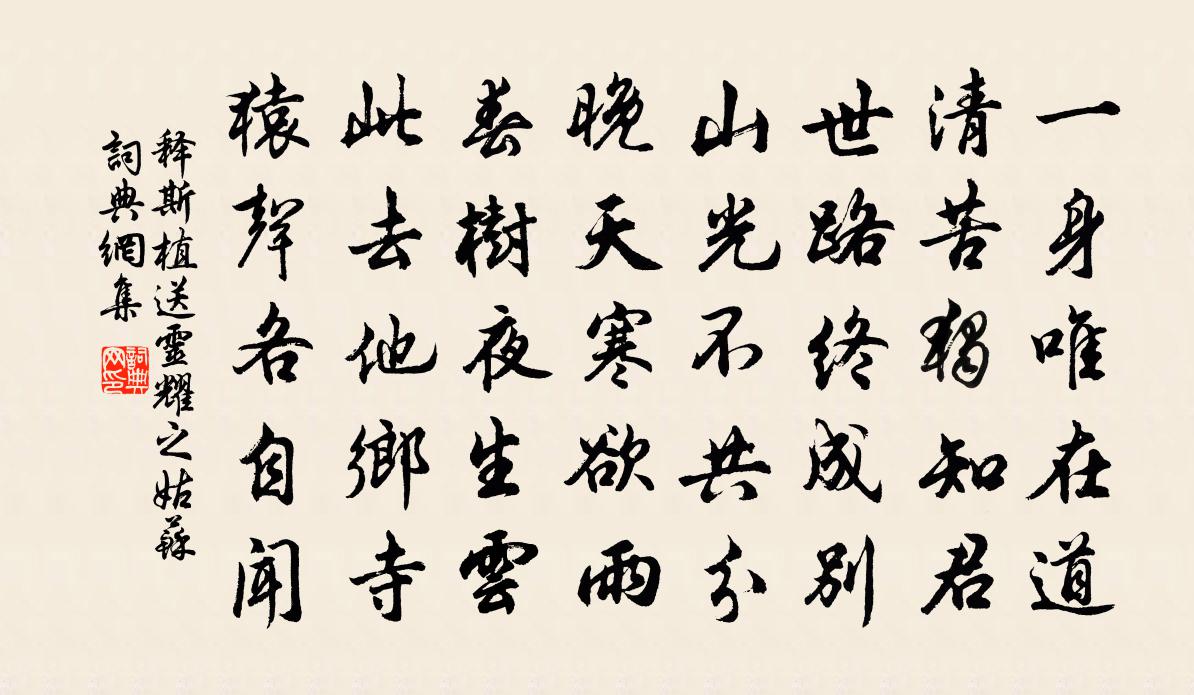 一身唯在道
清苦獨知君
世路終成別
山光不共分
晚天寒欲雨
春樹夜生雲
此去他鄉寺
猿聲各自聞
释斯植送靈耀之姑蘇
詞典網集
詞典网印